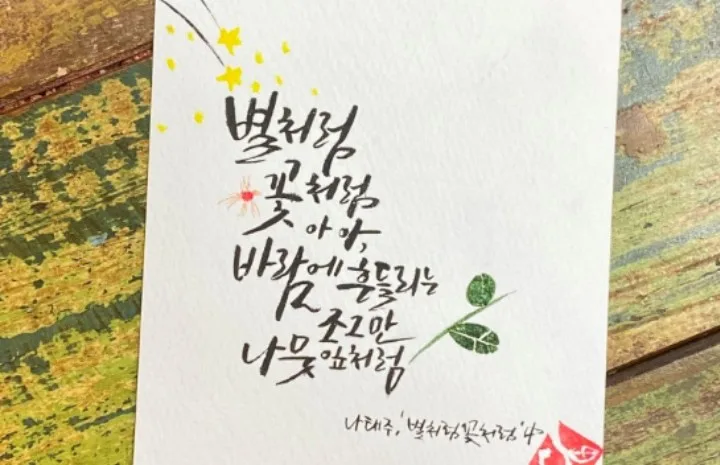 별처럼
꽃처럼
아 아,
바람에 흔들리는
조그만
나뭇잎처럼
나태주, '별처럼 꽃처럼' 中